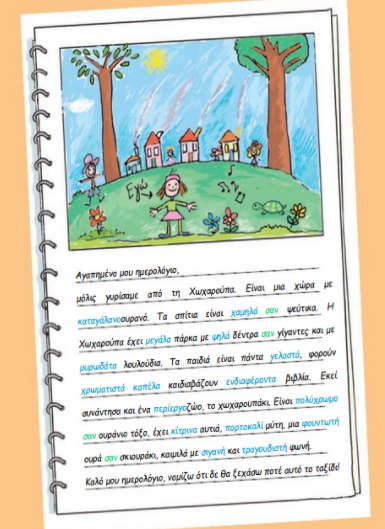 Εγώ
Αγαπημένο μου ημερολόγιο,
μόλις γυρίσαμε από τη Χωχαρούπα. Είναι μια χώρα με
καταγάλανοουρανό. Τα σπίτια είναι χαμηλά σαν ψεύτικα. Η
Χωχαρούπα έχει μεγάλα πάρκα με ψηλά δέντρα σαν γίγαντες και με
μυρωδάτα λουλούδια. Τα παιδιά είναι πάντα γελαστά, φορούν
χρωματιστά καπέλα καιδιαβάζουν ενδιαφέροντα βιβλία. Εκεί
συνάντησα και ένα περίεργοζώο, το χωχαρουπάκι. Είναι πολύχρωμο
σαν ουράνιο τόξο, έχει κίτρινα αυτιά, πορτοκαλί μύτη, μια φουντωτή
ουρά σαν σκιουράκι, καιμιλά με σιγανή και τραγουδιστή φωνή.
Καλό μου ημερολόγιο, νομίζω ότι δε θα ξεχάσω ποτέ αυτό το ταξίδι!